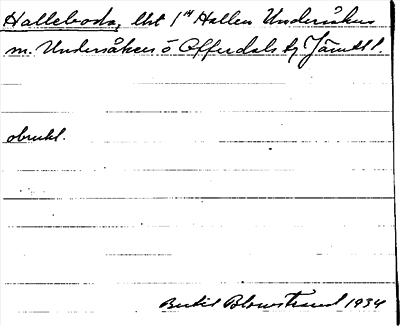 Halleboda, lht 1 M Hallen Undersåkers
m. Undersåkers o Offerdals tg Jämtl l.
obrukl.
Bertil Blomstrand 1934